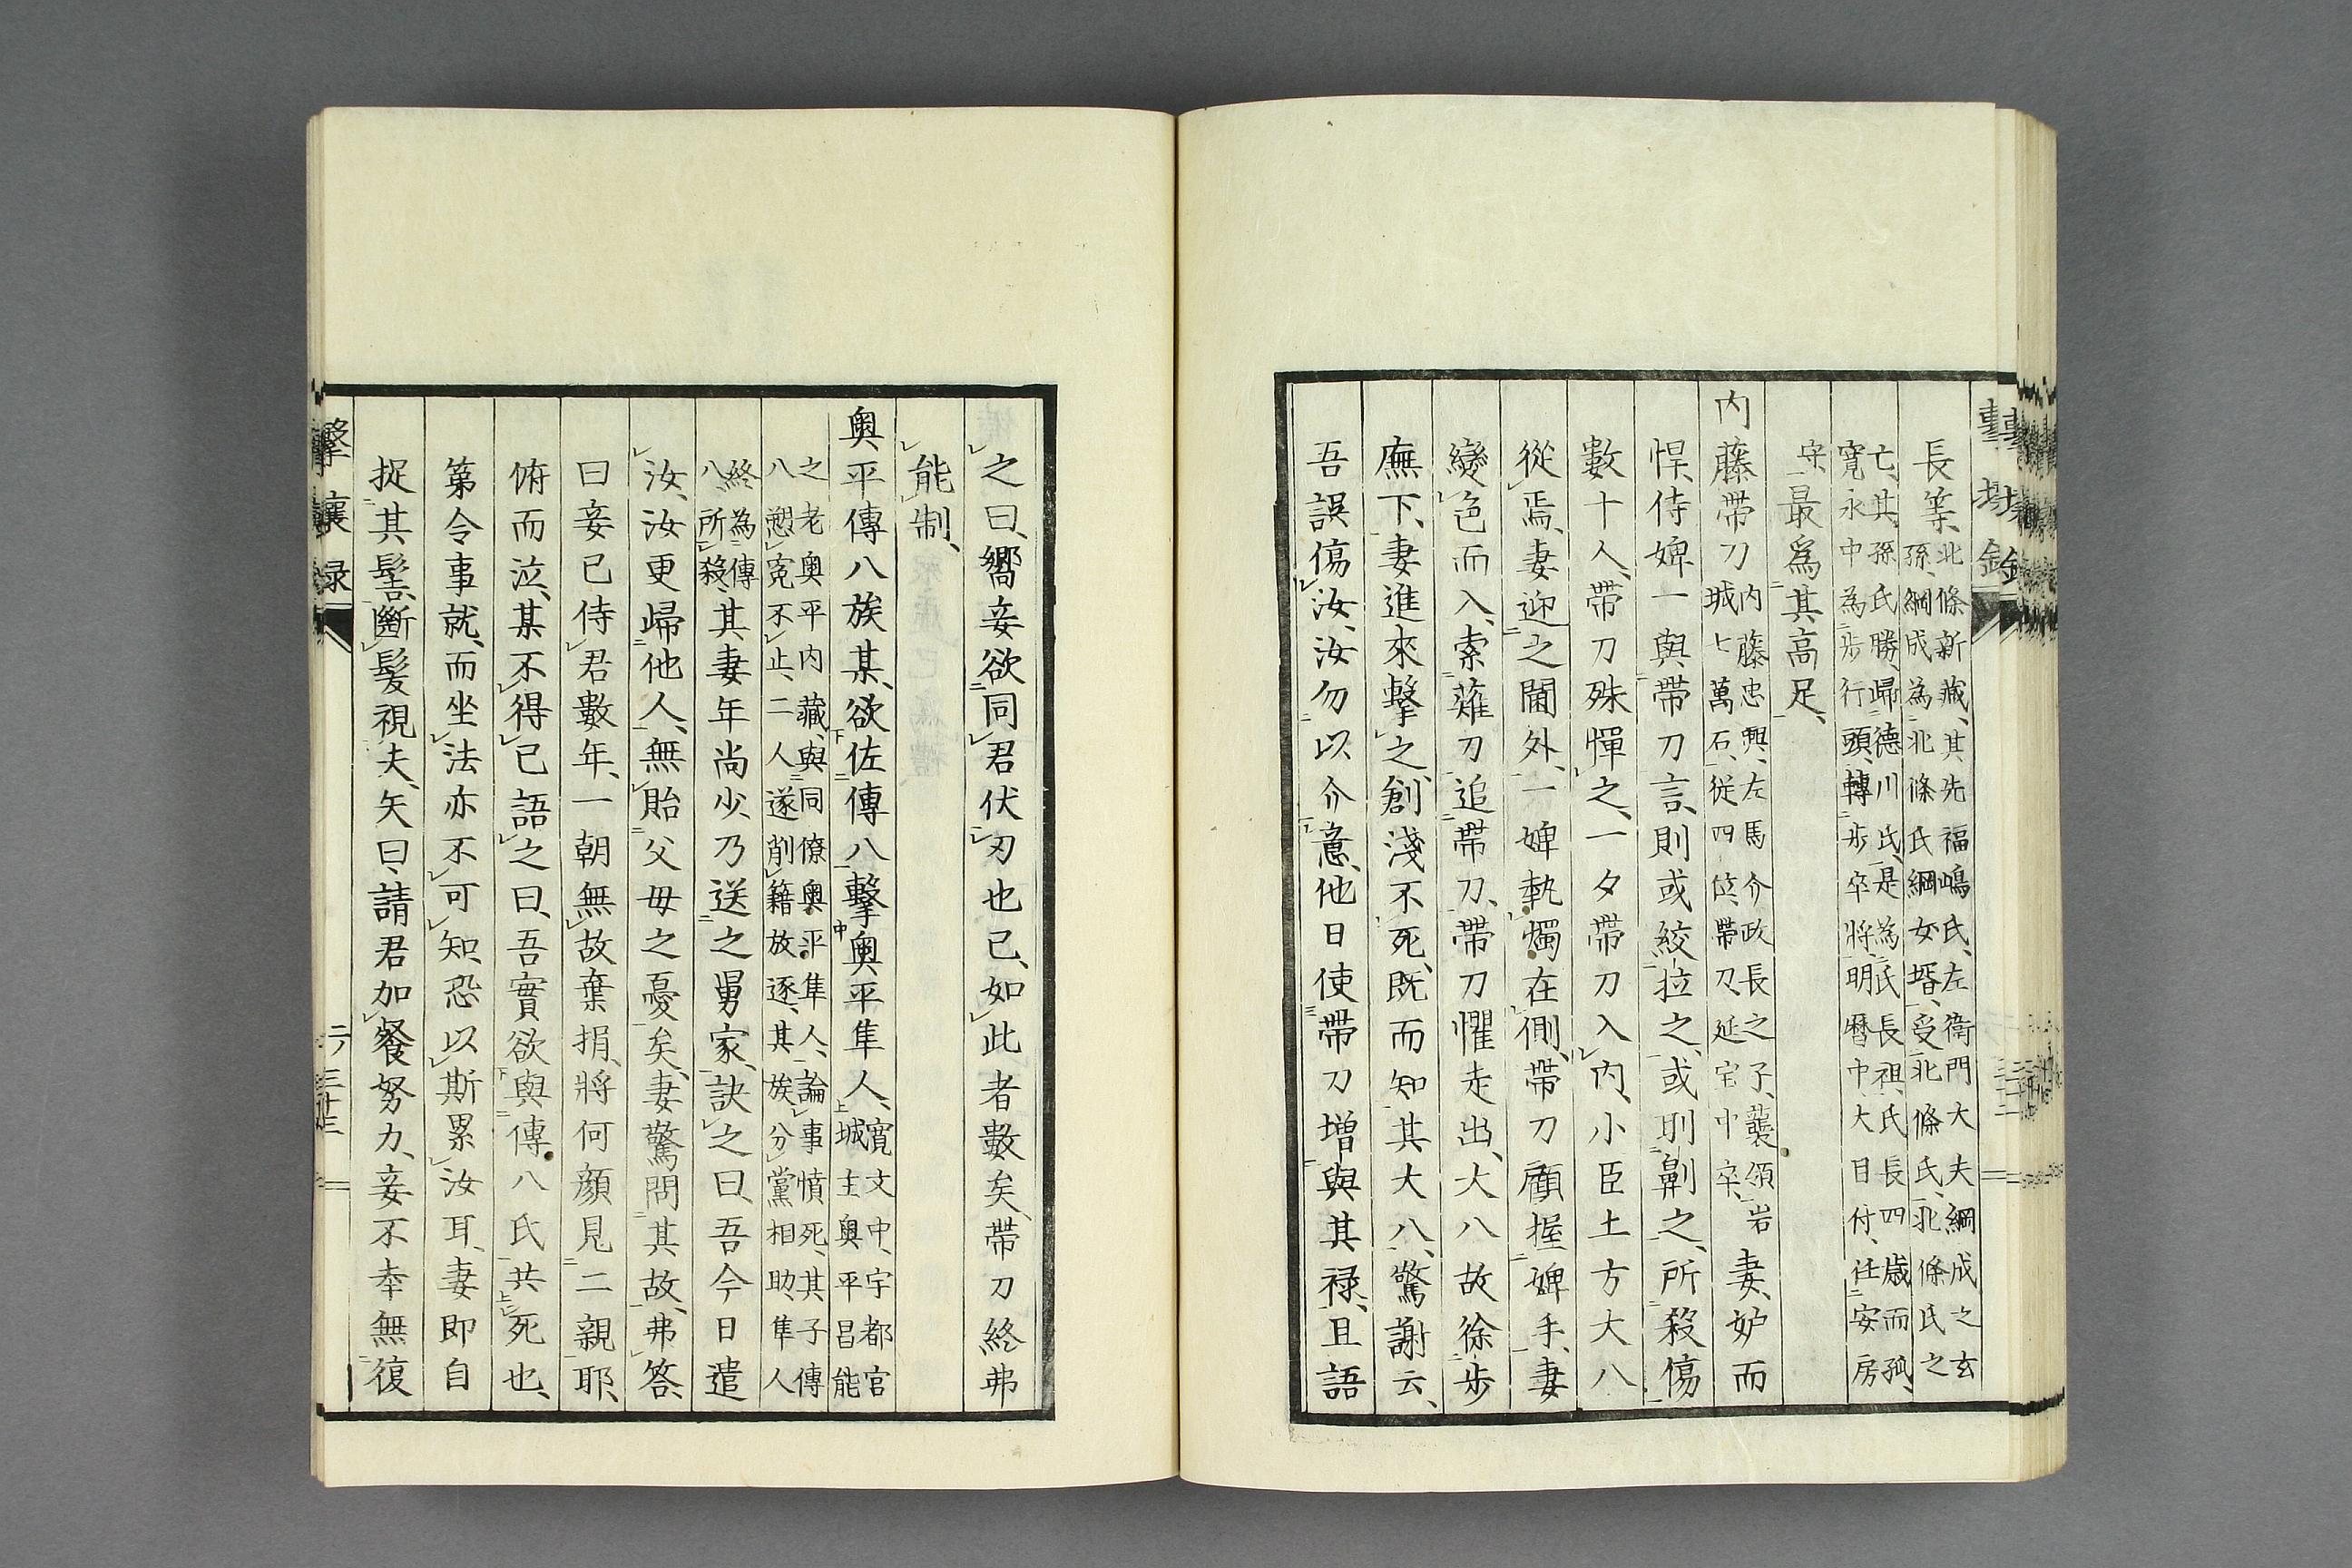 長等、北條新藏、其先福嶋氏、左衛門大夫綱成之玄
孫、綱成為北條氏綱女壻、受北條氏、北條氏之
亡、其孫氏勝、歸德川氏、是為氏長祖、氏長四歲而孤、
寛永中為步行頭、轉步卒將、明曆中大目付、任安房
守、最爲其高足、
内藤帶刀内藤忠興、左馬介政長之子、襲領岩
城七萬石、從四位帶刀、延宝中卒、妻妒而
悍、侍婢一與帶刀言、則或絞拉之、或刖劓之、所殺傷
數十人、帶刀殊憚之、一夕帶刀入内、小臣土方大八
從焉、妻迎之閫外、一婢執燭在側、帶刀顧握婢手、妻
變色而入、索薙刀追帶刀、帶刀懼走出、大八故徐步
廡下、妻進來擊之、創淺不死、既而知其大八、驚謝云、
吾誤傷汝、汝勿以介意、他日使帶刀増與其禄、且語
之曰、嚮妾欲同君伏刃也已、如此者數矣、帶刀終弗
能制、
奥平傳八族某、欲佐傳八擊奥平隼人、寛文中、宇都官
城主奥平昌能
之老奥平内藏、與同僚奥平隼人、論事憤死、其子傳
八愬寃不止、二人遂削籍放逐、其族、分黨相助、隼人
終為傳
八所殺、其妻年尚少、乃送之舅家、訣之曰、吾今日遣
汝、汝更歸他人、無貽父母之憂矣、妻驚問其故、弗答、
曰妾已侍君數年、一朝無故棄捐、將何顔見二親耶、
俯而泣、某不得已語之曰、吾實欲與傳八氏共死也、
第令事就、而坐法亦不可知、恐以斯累汝耳、妻即自
捉其髻、斷髮視夫、矢曰、請君加餐努力、妾不幸無復
擊壤録
二ノ三十三